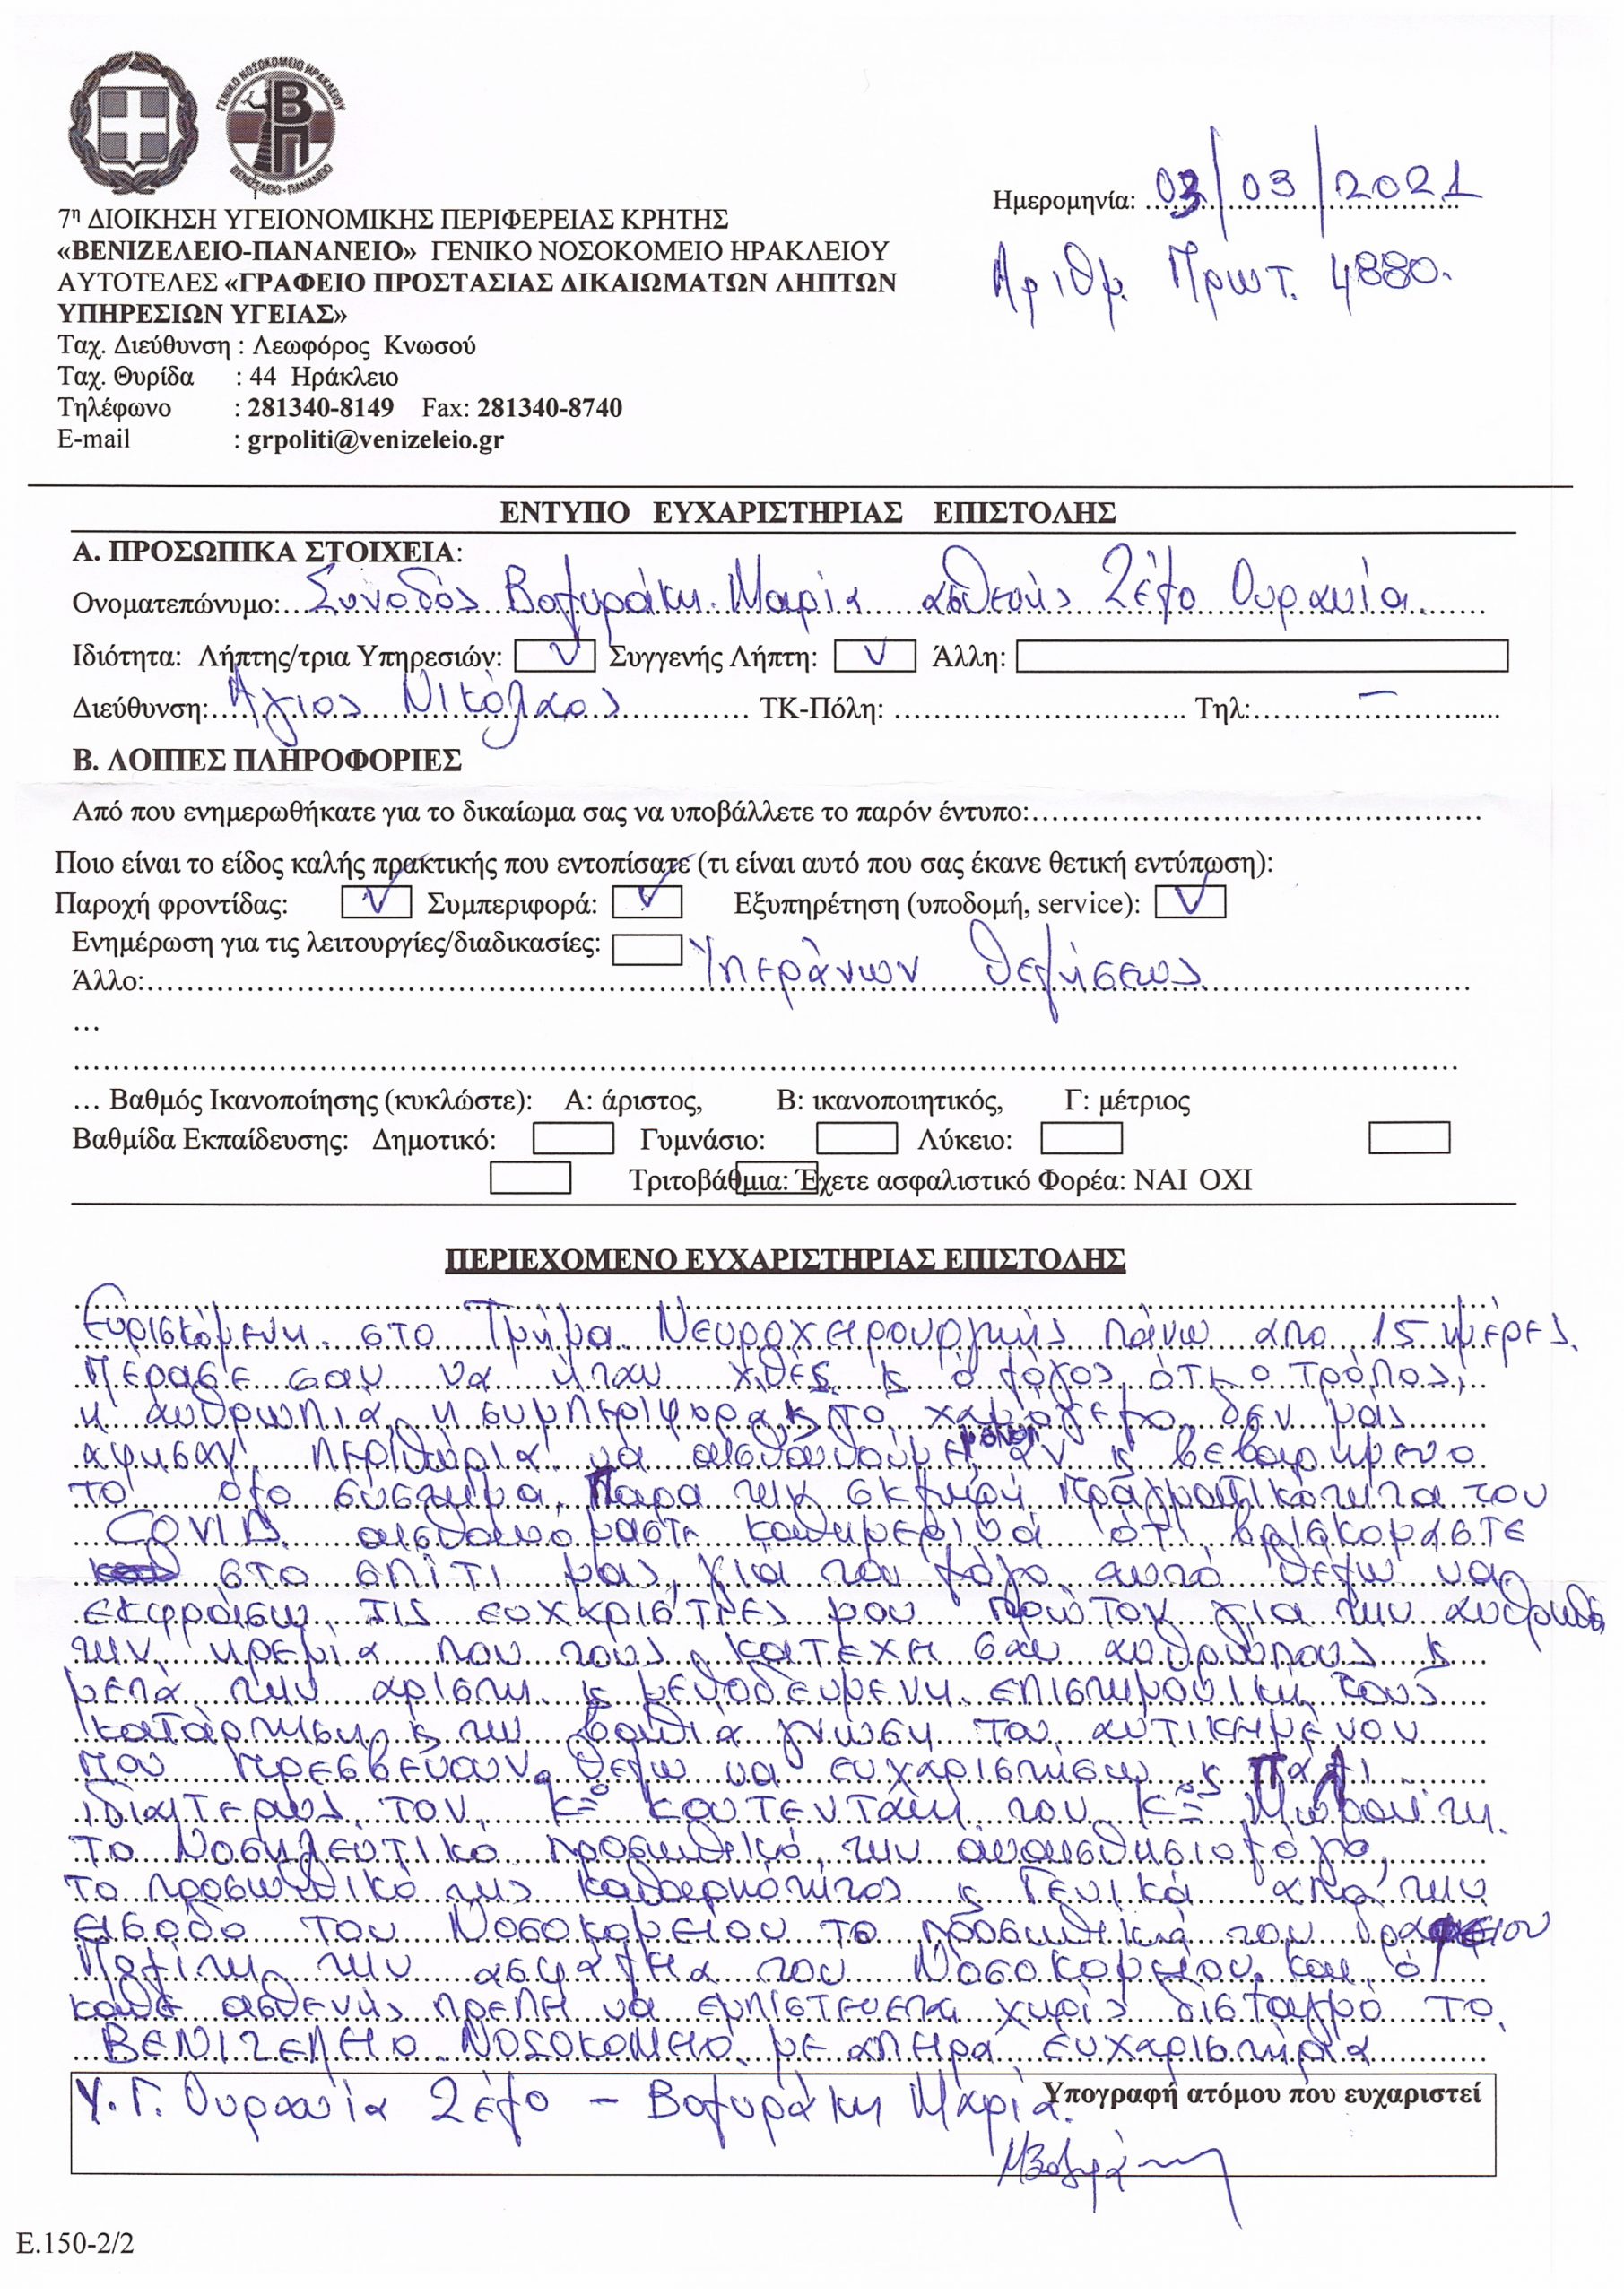 ΓΕΝΙΚΟ ΝΟΣΟΚΟΜΕΙΟ ΗΡΑΚΛΕΙΟΥ
ΒΠ
ΒΕΝΙΖΕΛΕΙΟ-ΠΑΝΑΝΕΙΟ
7η ΔΙΟΙΚΗΣΗ ΥΓΕΙΟΝΟΜΙΚΗΣ ΠΕΡΙΦΕΡΕΙΑΣ ΚΡΗΤΗΣ
«ΒΕΝΙΖΕΛΕΙΟ-ΠΑΝΑΝΕΙΟ» ΓΕΝΙΚΟ ΝΟΣΟΚΟΜΕΙΟ ΗΡΑΚΛΕΙΟΥ
ΑΥΤΟΤΕΛΕΣ «ΓΡΑΦΕΙΟ ΠΡΟΣΤΑΣΙΑΣ ΔΙΚΑΙΩΜΑΤΩΝ ΛΗΠΤΩΝ
ΥΠΗΡΕΣΙΩΝ ΥΓΕΙΑΣ»
Ταχ. Διεύθυνση : Λεωφόρος Κνωσού
Ταχ. Θυρίδα : 44 Ηράκλειο
Τηλέφωνο : 281340-8149 Fax: 281340-8740
E-mail : grpoliti@venizeleio.gr
Ημερομηνία: 03/03/2021
Αριθμ. Πρωτ. 4880.
ΕΝΤΥΠΟ ΕΥΧΑΡΙΣΤΗΡΙΑΣ ΕΠΙΣΤΟΛΗΣ
Α. ΠΡΟΣΩΠΙΚΑ ΣΤΟΙΧΕΙΑ:
Ονοματεπώνυμο: Συνοδός Βολυράκη Μαρία ασθενής Ζέλο Ουρανία
Ιδιότητα: Λήπτης/τρια Υπηρεσιών: V Συγγενής Λήπτη: V Άλλη:
Διεύθυνση: Άγιος Νικόλαος ΤΚ-Πόλη: Τηλ: –
Β. ΛΟΙΠΕΣ ΠΛΗΡΟΦΟΡΙΕΣ
Από που ενημερωθήκατε για το δικαίωμα σας να υποβάλλετε το παρόν έντυπο:
Ποιο είναι το είδος καλής πρακτικής που εντοπίσατε (τι είναι αυτό που σας έκανε θετική εντύπωση):
Παροχή φροντίδας: V Συμπεριφορά: V Εξυπηρέτηση (υποδομή, service): V
Ενημέρωση για τις λειτουργίες/διαδικασίες:
Άλλο: Υπεράνων θελήσεως
…
… Βαθμός Ικανοποίησης (κυκλώστε): Α: άριστος, Β: ικανοποιητικός, Γ: μέτριος
Βαθμίδα Εκπαίδευσης: Δημοτικό: Γυμνάσιο: Λύκειο:
Τριτοβάθμια: Έχετε ασφαλιστικό Φορέα: ΝΑΙ ΟΧΙ
ΠΕΡΙΕΧΟΜΕΝΟ ΕΥΧΑΡΙΣΤΗΡΙΑΣ ΕΠΙΣΤΟΛΗΣ
Ευρισκόμενη στο Τμήμα Νευροχειρουργικής πάνω απο 15 μέρες
Πέρασε σαν να ήταν χθες κ ό λόγος ότι ο τρόπος,
η ανθρωπια, η συμπεριφορα κ το χαμόγελο δεν μας
αφησαν περιθώρια να αισθανθούμε μόνοι αν κ βεβαρημενο
το όλο συστημα. Παρα την σκληρή πραγματικότητα του
COVID αισθανόμαστε καθημερινά ότι βρισκομαστε
στο σπίτι μας, για τον λόγο αυτό θελω να
εκφράσω τις ευχαριστίες μου πρώτον για την
την ηρεμία που τους κατεχη σαν ανθρώπους κ
μετά την αριστη κ μεθοδευμενη επιστημονική τους
κατάρτηση κ την βαθιά γνώση του αντικημένου
που πρεσβεύουν. Θελω να ευχαριστήσω κ πάλι
ιδιαιτερως τον κον
Το Νοσηλευτικό προσωπικό, την αναισθησιολόγο,
το προσωπικό της καθαριότητος κ Γενικά απο την
εισοδο του Νοσοκομείου το προσωπικό του Γραφείου
Πολίτη, την ασφάλεια του Νοσοκομείου και ό
καθε ασθενής πρεπη να εμπιστευετα χωρίς δισταγμό το
ΒΕΝΙΖΕΛΗΟ ΝΟΣΟΚΟΜΕΙΟ με απηρα ευχαριστήρια
Υπογραφή ατόμου που ευχαριστεί
Υ.Γ. Ουρανία Ζέλο – Βολυράκη Μαρία.
Ε.150-2/2